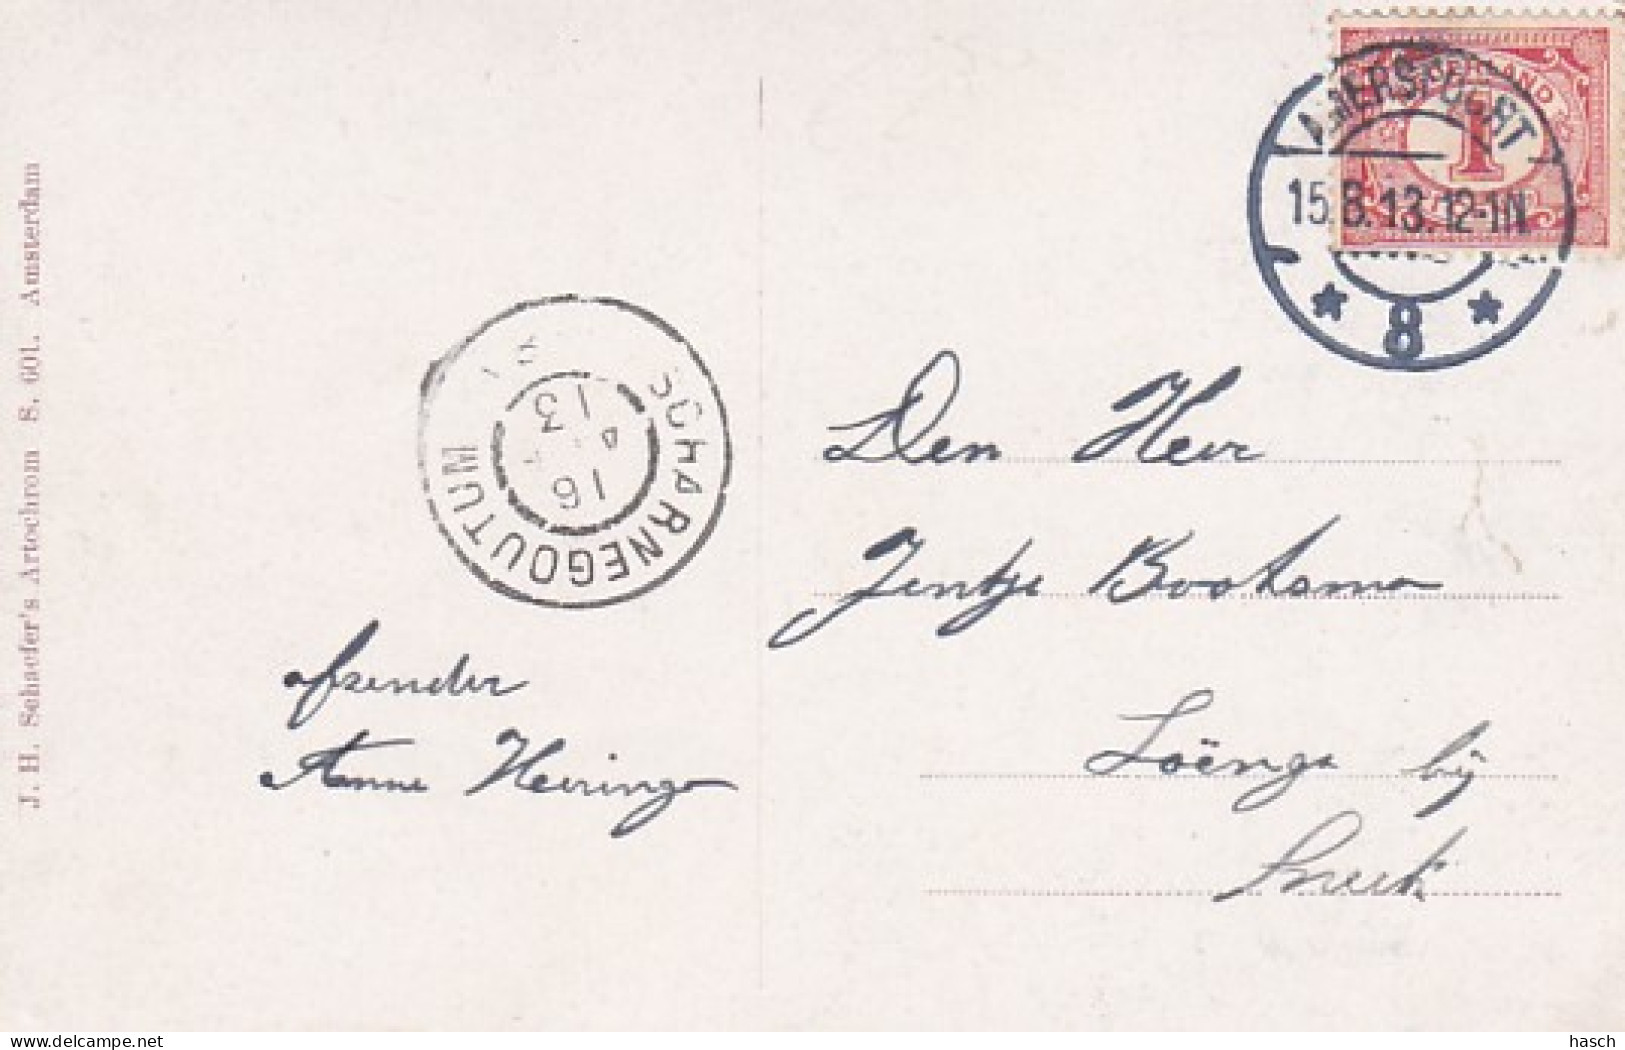 J. H. Schaefer's Artochrom S. 601. Amsterdam
NEDERLAND
1
AMERSFOORT
15.8.13.12-1N.
8
SCHARNEGOUTUM
16
13
Den Heer
Jentje Bootsma
Loënga bij
Sneek
afzender
Anne Heeringa
delcampe.net
hasch